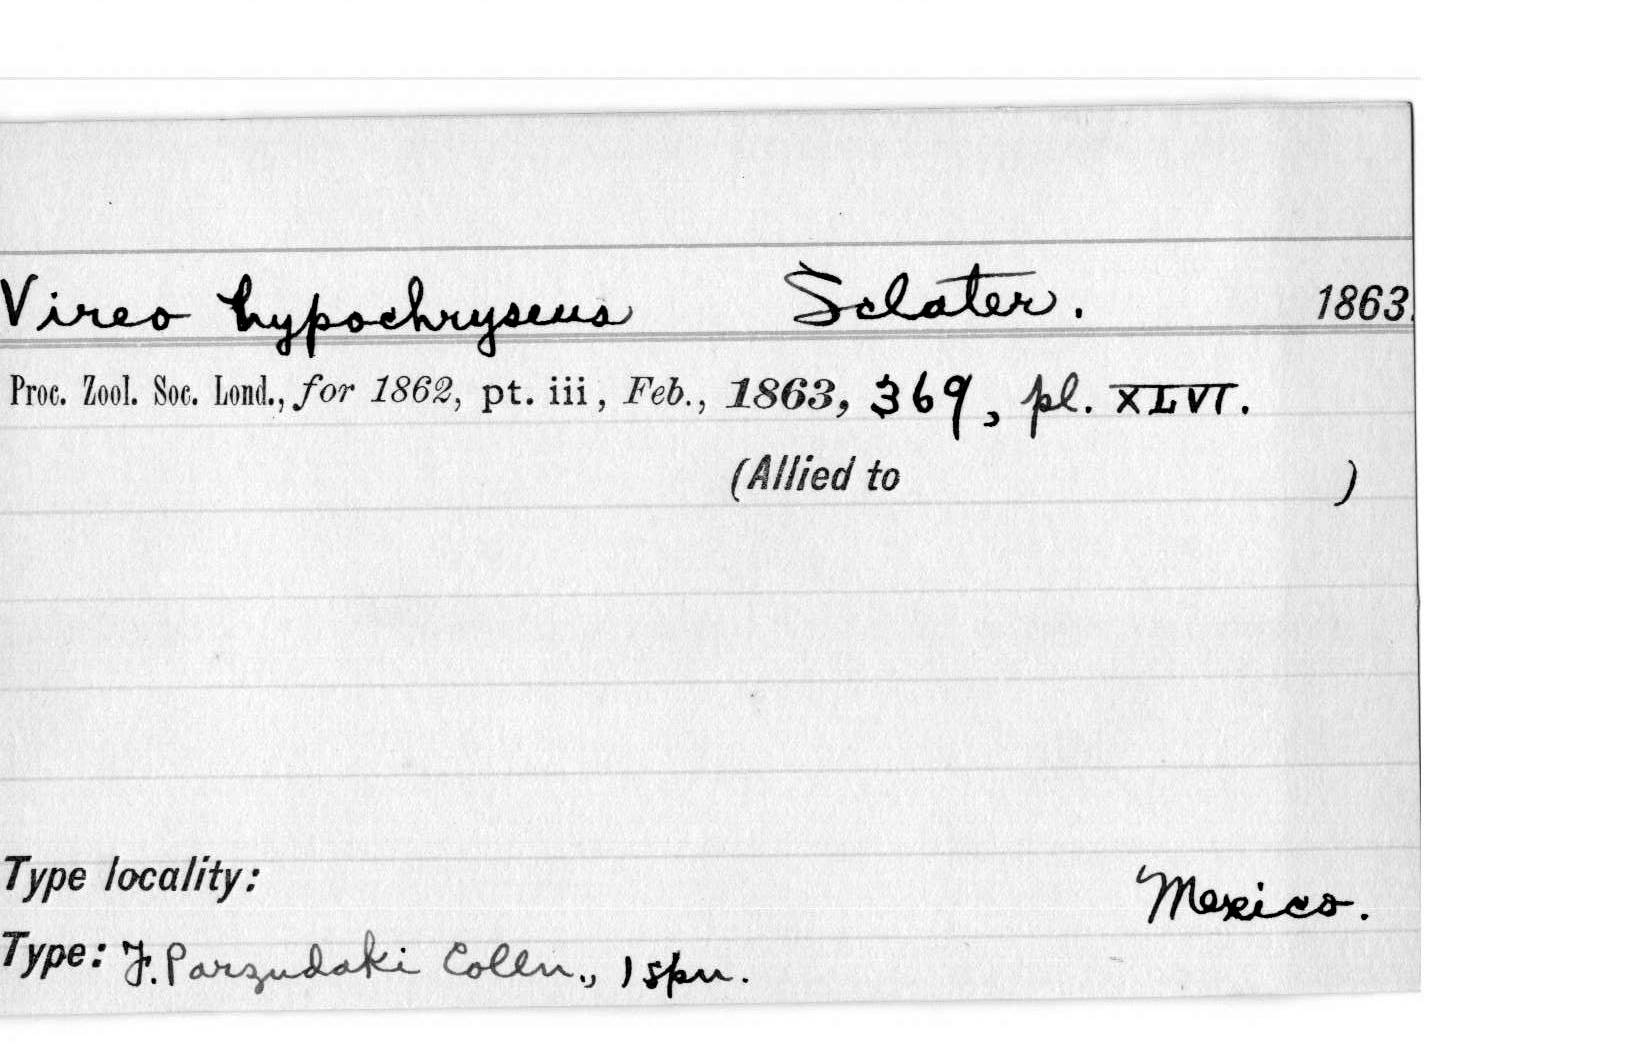 Vireo hypochryseus Sclater. 1863.
Proc. Zool. Soc. Lond., for 1862, pt. iii, Feb., 1863, 369, pl. XLVI.
(Allied to )
Type locality: Mexico.
Type: F. Parzudaki Colln., 1 spn.